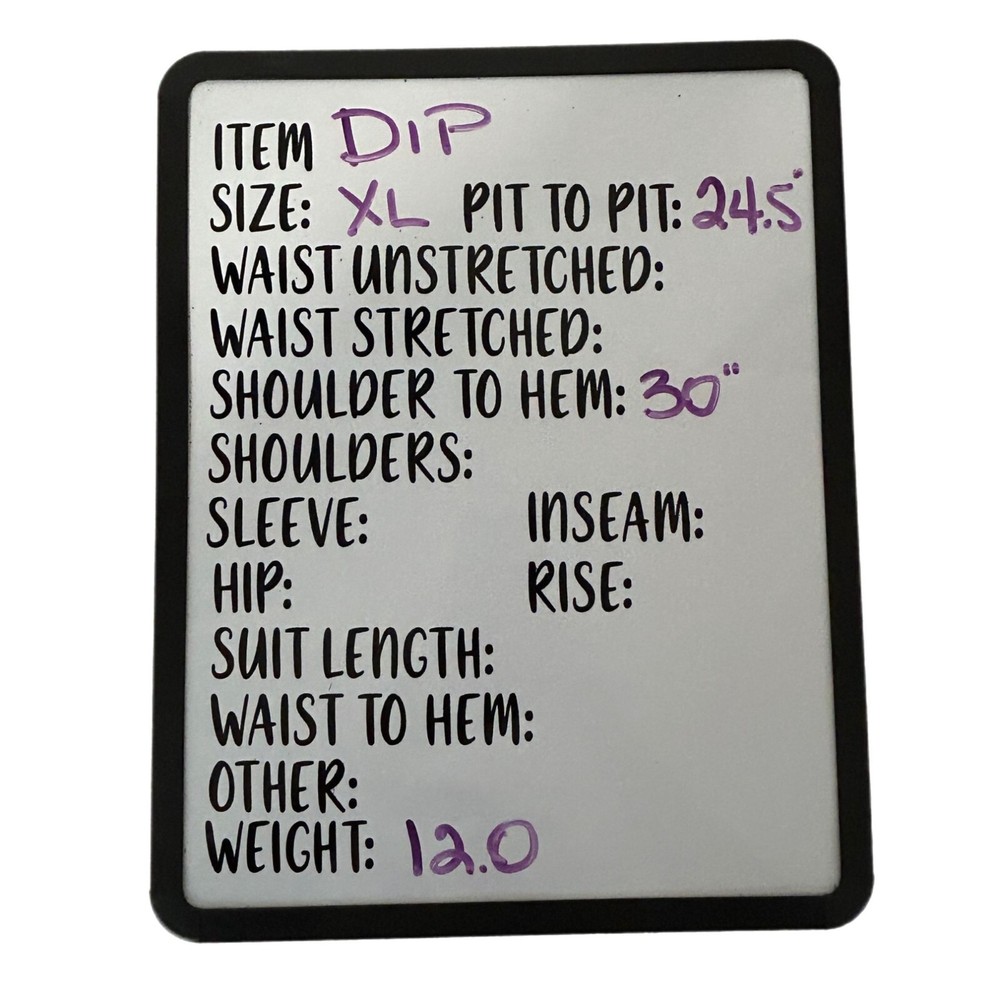 ITEM DIP
SIZE: XL PIT TO PIT: 24.5"
WAIST UNSTRETCHED:
WAIST STRETCHED:
SHOULDER TO HEM: 30"
SHOULDERS:
SLEEVE: INSEAM:
HIP: RISE:
SUIT LENGTH:
WAIST TO HEM:
OTHER:
WEIGHT: 12.0